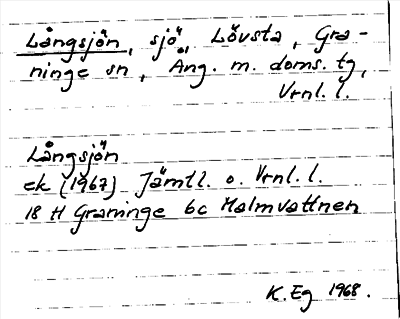 Långsjön, sjö, Lövsta, Gra-
ninge sn, Ång. m. doms. tg,
Vrnl. l.
Långsjön
ek (1967) Jämtl. o. Vrnl. l.
18 H Graninge bc Malmvattnen
K. Eg 1968.